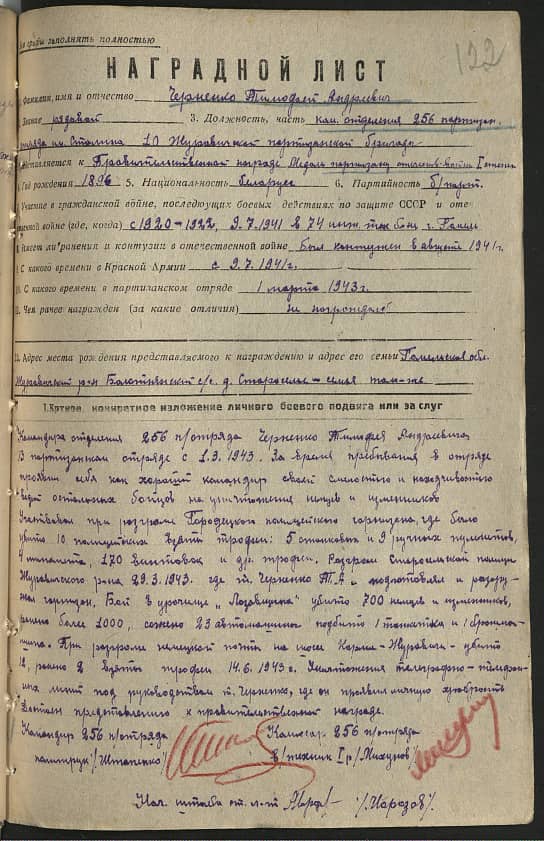 графы заполнять полностью
122
НАГРАДНОЙ ЛИСТ
Фамилия, имя и отчество Черненко Тимофей Андреевич
Звание рядовой 3. Должность, часть ком. отделения 256 партизан.
отряда им. Сталина 10 Журавичской партизанской бригады
Представляется к Правительственной награде Медаль партизану отечеств. войны I степени
Год рождения 1896 5. Национальность беларус 6. Партийность б/парт.
Участие в гражданской войне, последующих боевых действиях по защите СССР и отече-
ственной войне (где, когда) с 1920–1922, 9.7.1941 в 74 г. Гомель
Имеет ли ранения и контузии в отечественной войне Был контужен в августе 1941 г.
С какого времени в Красной Армии с 9.7.1941 г.
С какого времени в партизанском отряде 1 марта 1943 г.
Чем ранее награжден (за какие отличия) не награждался
Адрес места рождения представляемого к награждению и адрес его семьи Гомельская обл.
Журавичский р-он Болотнянский с/с. д. Староселье – семья там-же
I. Краткое, конкретное изложение личного боевого подвига или заслуг
Командира отделения 256 п/отряда Черненко Тимофея Андреевича
В партизанском отряде с 1.3.1943. За время пребывания в отряде
проявил себя как хороший командир своей смелостью и находчивостью
остальных бойцов на уничтожения немцев и изменников
Участвовал при розгроме Городецкого полицейского гарнизона, где было
убито 10 полицейских взяты трофеи: 5 станковых и 9 ручных пулеметов,
4 миномета, 170 винтовок и др. трофеи. Розгром Старосельской полиции
Журавичского р-на 29.3.1943. где т. Черненко Т.А. подготовлял и разору-
жал гарнизон. Бой в урочище "Лозовщина" убито 700 немцев и изменников,
ранено более 1000, сожено 23 автомашины подбито 1 танкетка и 1 бронема-
шина. При розгроме немецкой почты на шосе Корма–Журавичи – убито
12, ранено 2 взяты трофеи 14.6.1943 г. Уничтожения телеграфно-телефон-
ных линий под руководством т. Черненко, где он проявил личную храбрость
Достоин представлению к правительственной награде.
Командир 256 п/отряда Комиссар 256 п/отряда
политрук /Штапенко/ в/техник I р /Михунов/
Нач. штаба ст. л-т /Марозов/.